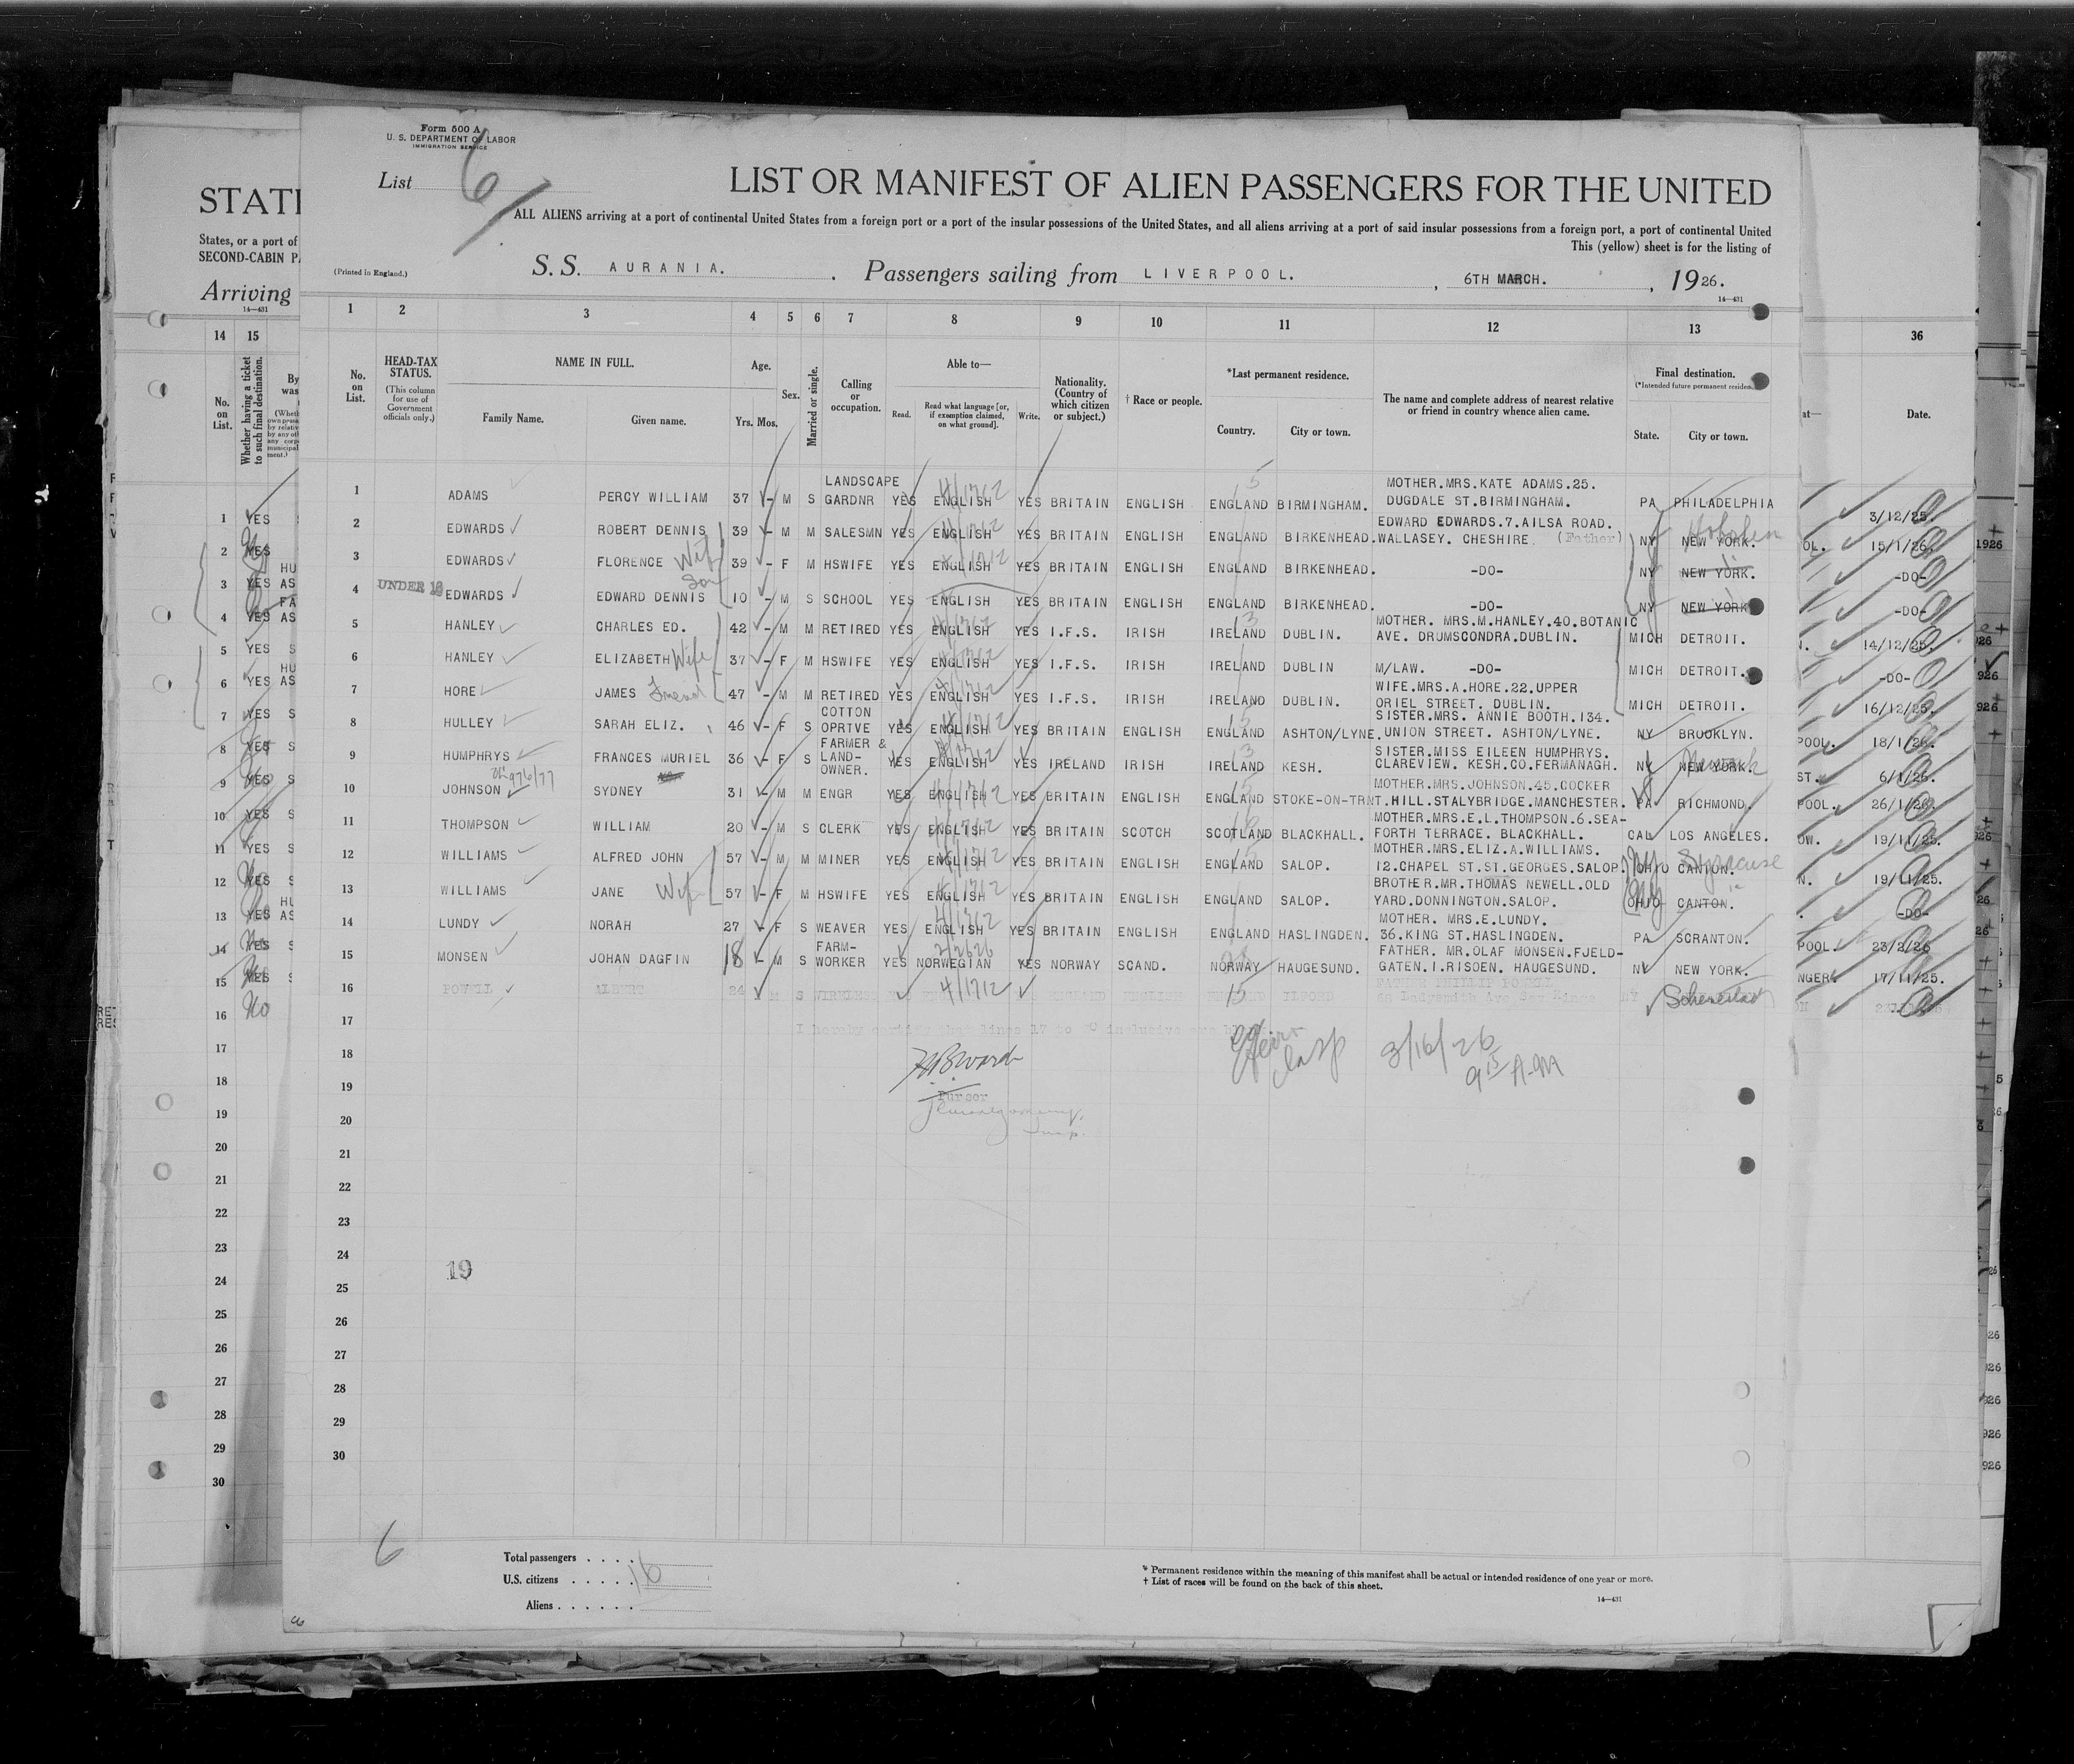 Form 500 A
U. S. DEPARTMENT OF LABOR
IMMIGRATION SERVICE
List 6
LIST OR MANIFEST OF ALIEN PASSENGERS FOR THE UNITED
ALL ALIENS arriving at a port of continental United States from a foreign port or a port of the insular possessions of the United States, and all aliens arriving at a port of said insular possessions from a foreign port, a port of continental United
This (yellow) sheet is for the listing of
(Printed in England.)
S.S. AURANIA. Passengers sailing from LIVERPOOL. , 6TH MARCH. , 1926.
14—431
STAT
States, or a port of
SECOND-CABIN PA
Arriving
14—431
14 15
No. on List.
Whether having a ticket to such final destination.
1 2 3 4 5 6 7 8 9 10 11 12 13
36
No. on List.
HEAD-TAX STATUS.
(This column for use of Government officials only.)
NAME IN FULL.
Family Name. Given name.
Age.
Yrs. Mos.
Sex.
Married or single.
Calling or occupation.
Able to—
Read. Read what language [or, if exemption claimed, on what ground]. Write.
Nationality. (Country of which citizen or subject.)
† Race or people.
*Last permanent residence.
Country. City or town.
The name and complete address of nearest relative or friend in country whence alien came.
Final destination.
(*Intended future permanent residen
State. City or town.
at— Date.
1 ADAMS PERCY WILLIAM 37 - M S LANDSCAPE GARDNR YES ENGLISH YES BRITAIN ENGLISH ENGLAND BIRMINGHAM. MOTHER.MRS.KATE ADAMS.25. DUGDALE ST.BIRMINGHAM. PA PHILADELPHIA 3/12/25.
2 EDWARDS ROBERT DENNIS 39 - M M SALESMN YES ENGLISH YES BRITAIN ENGLISH ENGLAND BIRKENHEAD. EDWARD EDWARDS.7.AILSA ROAD. WALLASEY. CHESHIRE. (Father) NY NEW YORK. Hoboken 15/1/26.
3 EDWARDS FLORENCE Wife 39 - F M HSWIFE YES ENGLISH YES BRITAIN ENGLISH ENGLAND BIRKENHEAD. -DO- NY NEW YORK. -DO-
4 UNDER 16 EDWARDS EDWARD DENNIS Son 10 - M S SCHOOL YES ENGLISH YES BRITAIN ENGLISH ENGLAND BIRKENHEAD. -DO- NY NEW YORK -DO-
5 HANLEY CHARLES ED. 42 - M M RETIRED YES ENGLISH YES I.F.S. IRISH IRELAND DUBLIN. MOTHER. MRS.M.HANLEY.40.BOTANIC AVE. DRUMSCONDRA.DUBLIN. MICH DETROIT. 14/12/25.
6 HANLEY ELIZABETH Wife 37 - F M HSWIFE YES ENGLISH YES I.F.S. IRISH IRELAND DUBLIN M/LAW. -DO- MICH DETROIT. -DO-
7 HORE JAMES Friend 47 - M M RETIRED YES ENGLISH YES I.F.S. IRISH IRELAND DUBLIN. WIFE.MRS.A.HORE.22.UPPER ORIEL STREET. DUBLIN. MICH DETROIT. 16/12/25.
8 HULLEY SARAH ELIZ. 46 - F S COTTON OPRTVE YES ENGLISH YES BRITAIN ENGLISH ENGLAND ASHTON/LYNE. SISTER.MRS. ANNIE BOOTH.134. UNION STREET. ASHTON/LYNE. NY BROOKLYN. 18/1/26.
9 HUMPHRYS FRANCES MURIEL 36 - F S FARMER & LAND-OWNER. YES ENGLISH YES IRELAND IRISH IRELAND KESH. SISTER.MISS EILEEN HUMPHRYS. CLAREVIEW. KESH.CO.FERMANAGH. NY NEW YORK. Newark 6/1/26.
10 JOHNSON SYDNEY 31 - M M ENGR YES ENGLISH YES BRITAIN ENGLISH ENGLAND STOKE-ON-TRNT. MOTHER.MRS.JOHNSON.45.COCKER HILL.STALYBRIDGE.MANCHESTER. PA RICHMOND. 26/1/26.
11 THOMPSON WILLIAM 20 - M S CLERK YES ENGLISH YES BRITAIN SCOTCH SCOTLAND BLACKHALL. MOTHER.MRS.E.L.THOMPSON.6.SEA-FORTH TERRACE. BLACKHALL. CAL LOS ANGELES. 19/11/25.
12 WILLIAMS ALFRED JOHN 57 - M M MINER YES ENGLISH YES BRITAIN ENGLISH ENGLAND SALOP. MOTHER.MRS.ELIZ.A.WILLIAMS. 12.CHAPEL ST.ST.GEORGES.SALOP. OHIO CANTON. NY Syracuse 19/11/25.
13 WILLIAMS JANE Wife 57 - F M HSWIFE YES ENGLISH YES BRITAIN ENGLISH ENGLAND SALOP. BROTHER.MR.THOMAS NEWELL.OLD YARD.DONNINGTON.SALOP. OHIO NY CANTON. -DO-
14 LUNDY NORAH 27 - F S WEAVER YES ENGLISH YES BRITAIN ENGLISH ENGLAND HASLINGDEN. MOTHER. MRS.E.LUNDY. 36.KING ST.HASLINGDEN. PA SCRANTON. 23/2/26
15 MONSEN JOHAN DAGFIN 18 - M S FARM-WORKER YES NORWEGIAN YES NORWAY SCAND. NORWAY HAUGESUND. FATHER. MR.OLAF MONSEN.FJELD-GATEN.I.RISOEN. HAUGESUND. NY NEW YORK. 17/11/25.
16 POWELL ALBERT 24 M S WIRELESS ENGLISH ILFORD FATHER PHILLIP POWELL NY Schenectady
17 I hereby certify that lines 17 to 30 inclusive are bl
18
19 Purser
20
21
22
23
24
25
26
27
28
29
30
3/16/26
9 15 A-M
19
6
Total passengers . . . .
U.S. citizens . . . . . 16
Aliens . . . . . .
* Permanent residence within the meaning of this manifest shall be actual or intended residence of one year or more.
† List of races will be found on the back of this sheet.
14—431